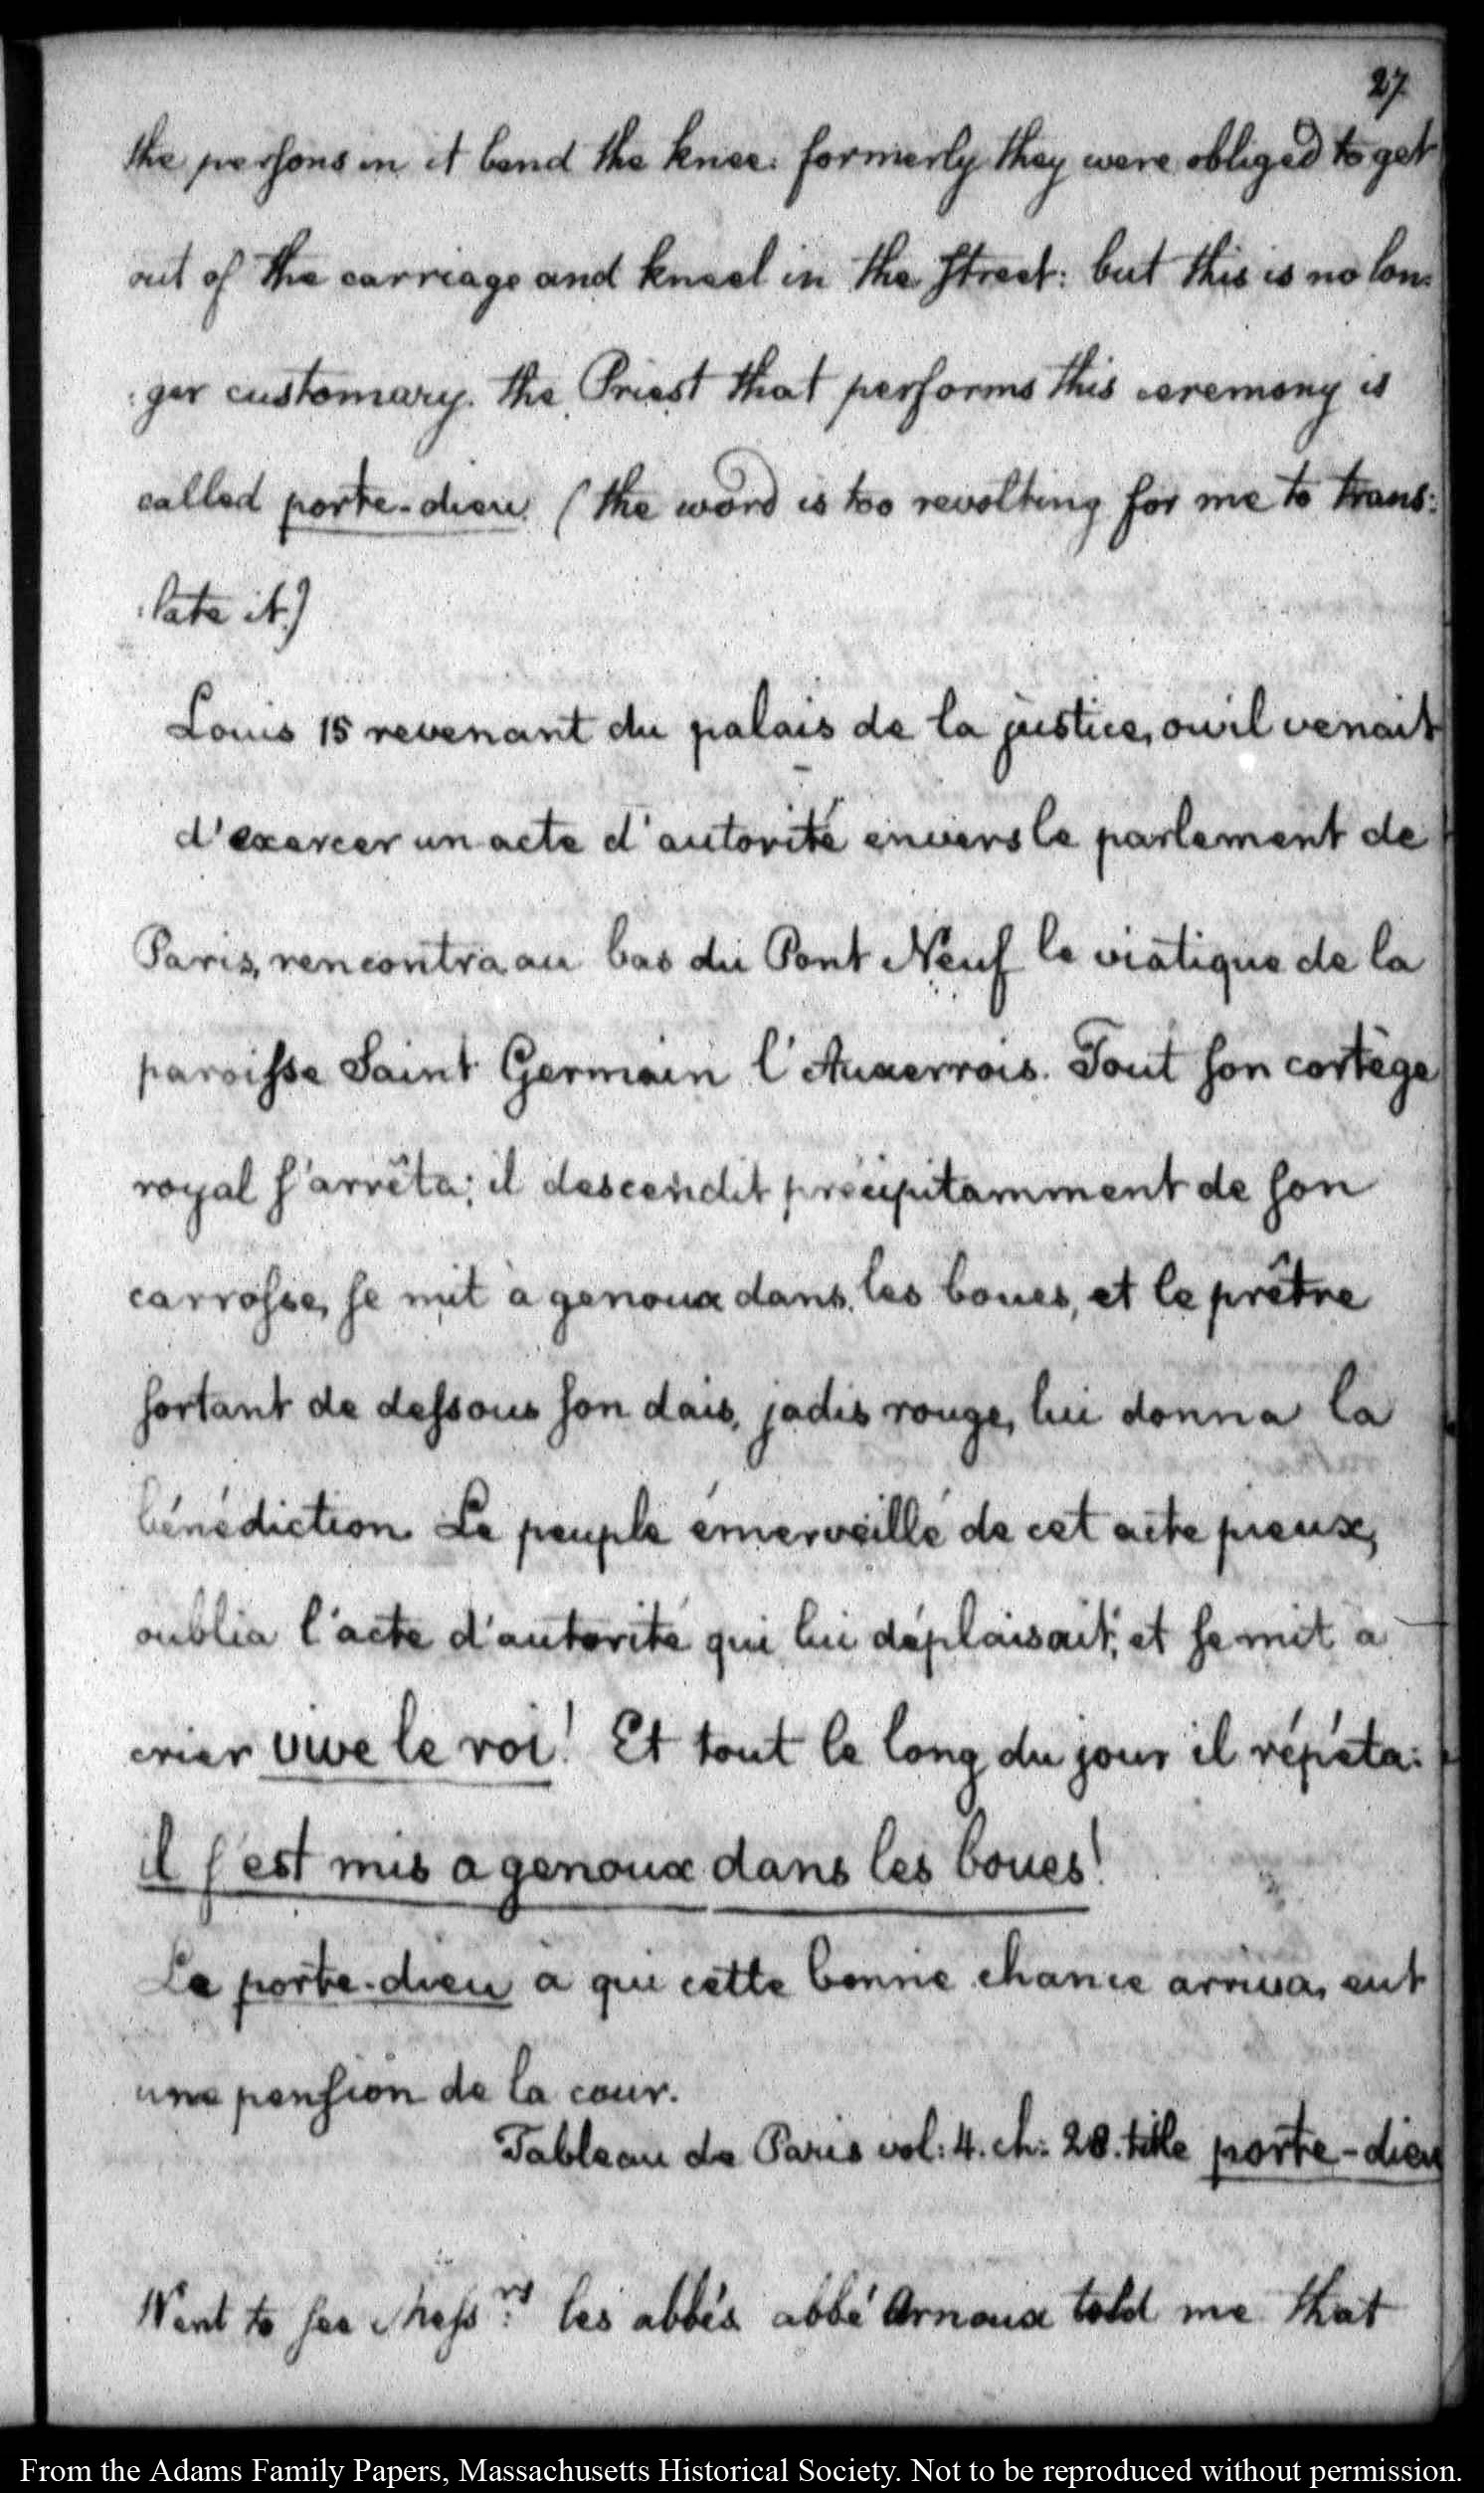 27
the persons in it bend the knee: formerly they were obliged to get
out of the carriage and kneel in the street: but this is no lon:
:ger customary. the Priest that performs this ceremony is
called porte-dieu. (the word is too revolting for me to trans:
:late it.)
Louis 15 revenant du palais de la justice, ou il venait
d'exercer un acte d'autorité envers le parlement de
Paris, rencontra au bas du Pont Neuf le viatique de la
paroisse Saint Germain l'Auxerrois. Tout son cortège
royal s'arrêta; il descendit précipitamment de son
carrosse, se mit a genoux dans les boues, et le prêtre
sortant de dessous son dais, jadis rouge, lui donna la
bénédiction. Le peuple émerveillé de cet acte pieux,
oublia l'acte d'autorité qui lui déplaisait; et se mit a
crier vive le roi! Et tout le long du jour il répéta:
il s'est mis a genoux dans les boues!
Le porte-dieu a qui cette bonne chance arriva, eut
une pension de la cour.
Tableau de Paris vol: 4. ch: 28. title porte-dieu
Went to see Mess:rs les abbés abbé Arnoux told me that
From the Adams Family Papers, Massachusetts Historical Society. Not to be reproduced without permission.